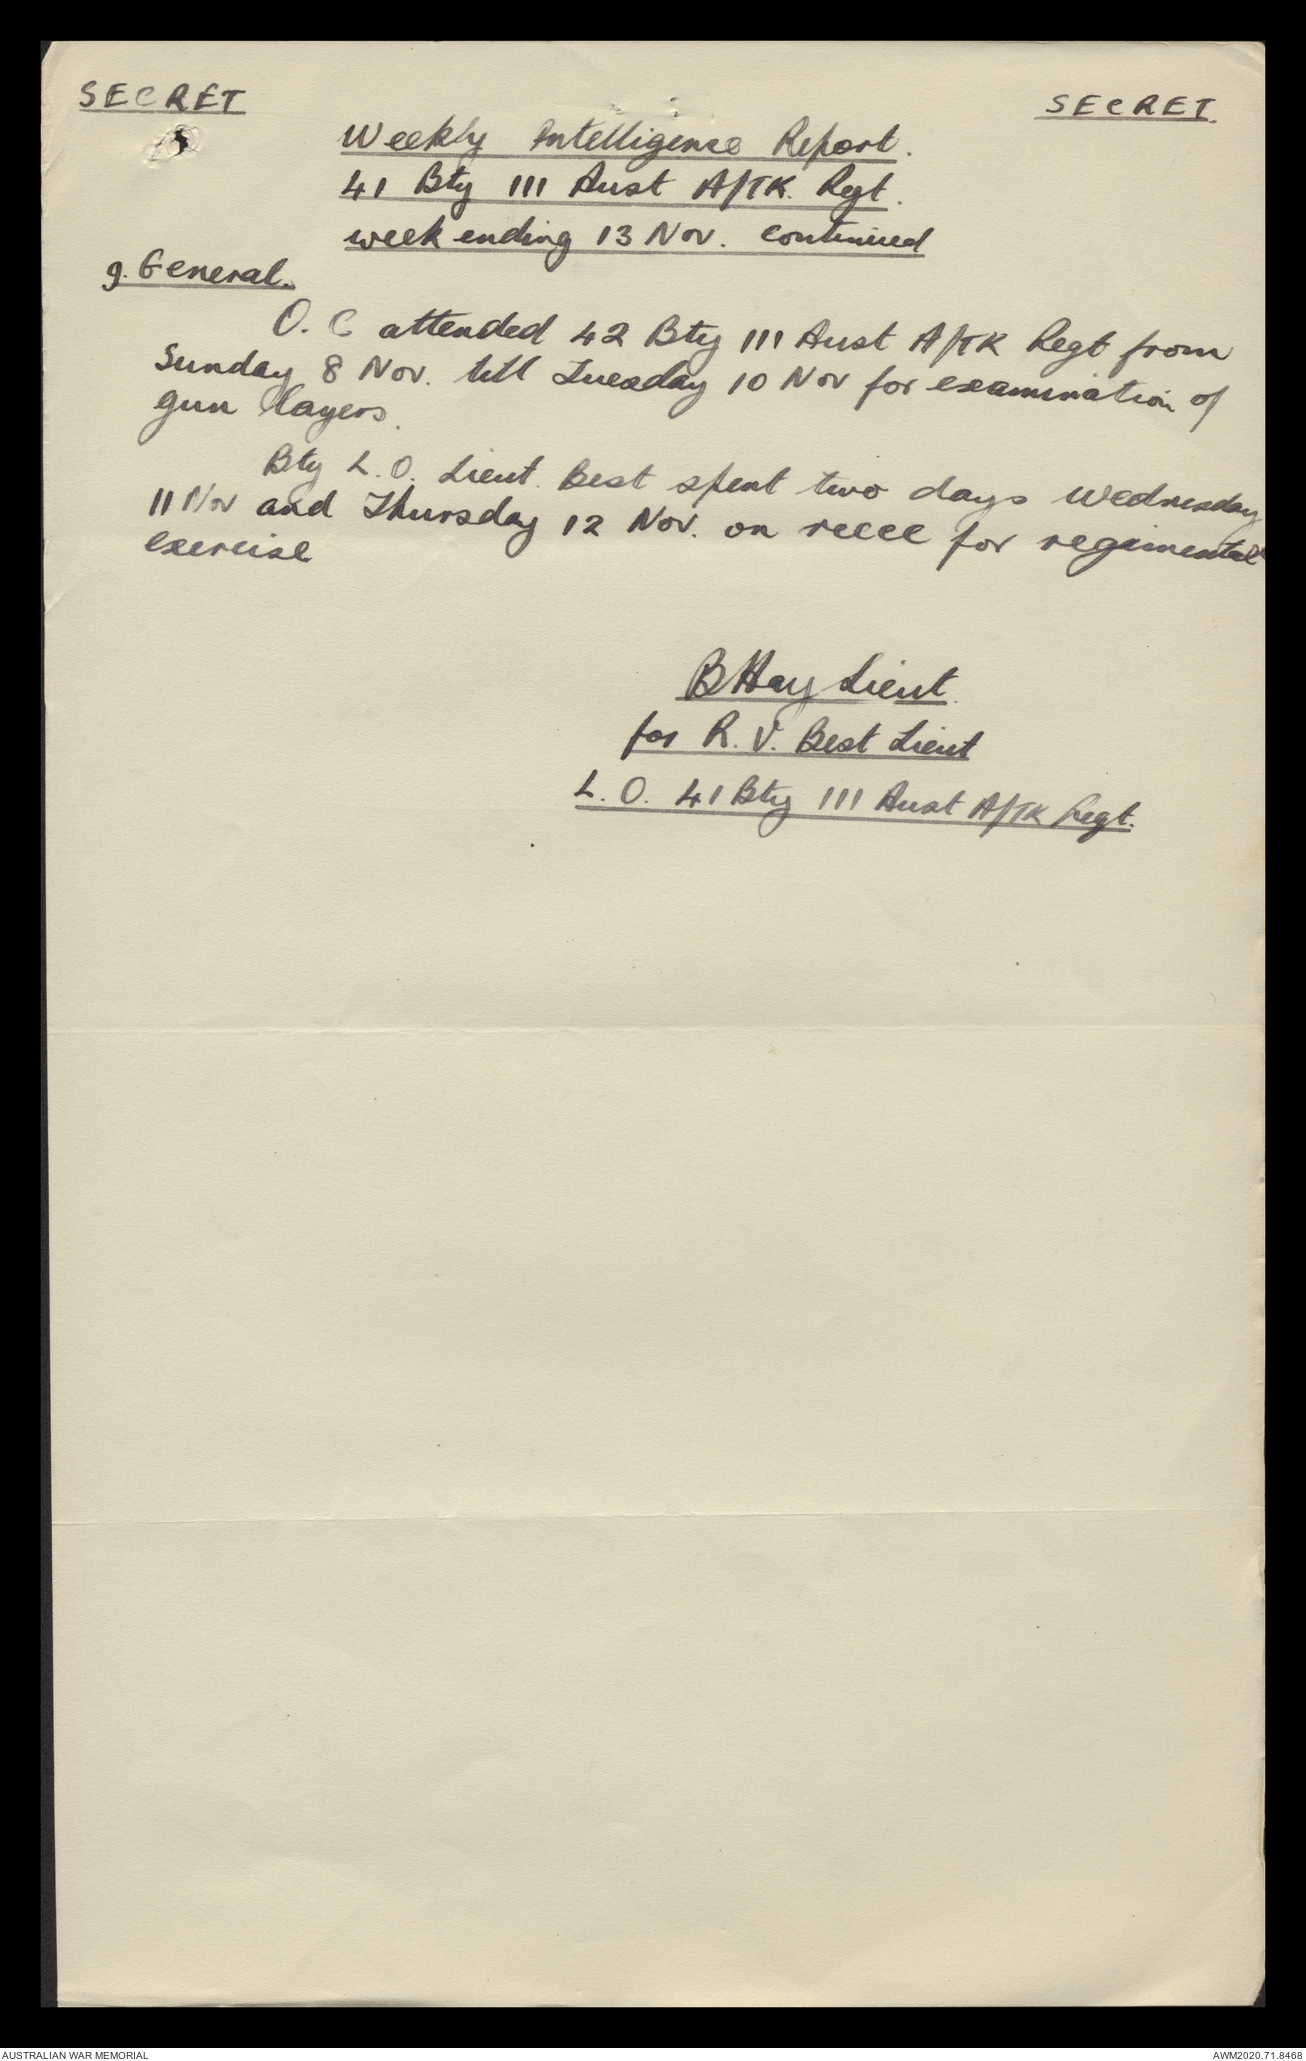 SECRET
SECRET.
Weekly Intelligence Report.
41 Bty 111 Aust A/TK. Rgt.
week ending 13 Nov. continued
g. General.
O. C attended 42 Bty 111 Aust A/TK Regt from
Sunday 8 Nov. till Tuesday 10 Nov for examination of
gun layers.
Bty L. O. Lieut. Best spent two days Wednesday
11 Nov and Thursday 12 Nov. on recce for regimental
exercise
B Hay Lieut.
for R. V. Best Lieut
L. O. 41 Bty 111 Aust A/TK Regt.
AUSTRALIAN WAR MEMORIAL
AWM2020.71.8468